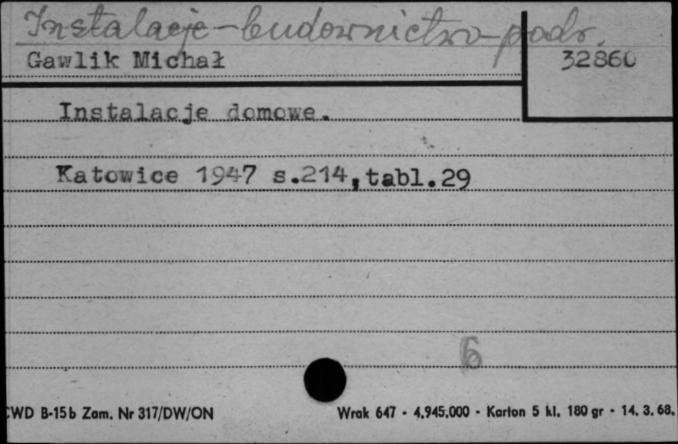 Instalacje - budownictwo - podr.
Gawlik Michał
32860
Instalacje domowe.
Katowice 1947 s.214, tabl.29
6
CWD B-15b Zam. Nr 317/DW/ON
Wrak 647 - 4.945.000 - Karton 5 kl. 180 gr - 14. 3. 68.